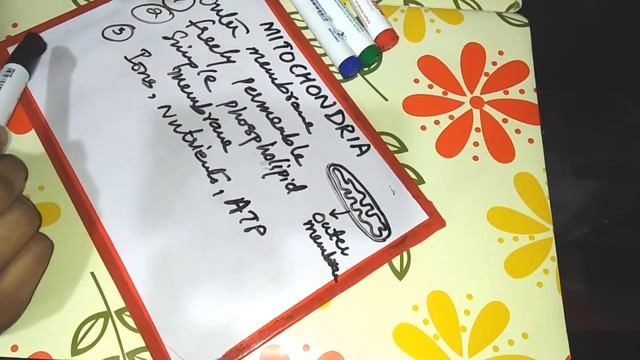 MITOCHONDRIA
① Outer membrane
freely permeable
② Simple phospholipid
membrane
③ Ions, Nutrients, ATP
Outer
membrane